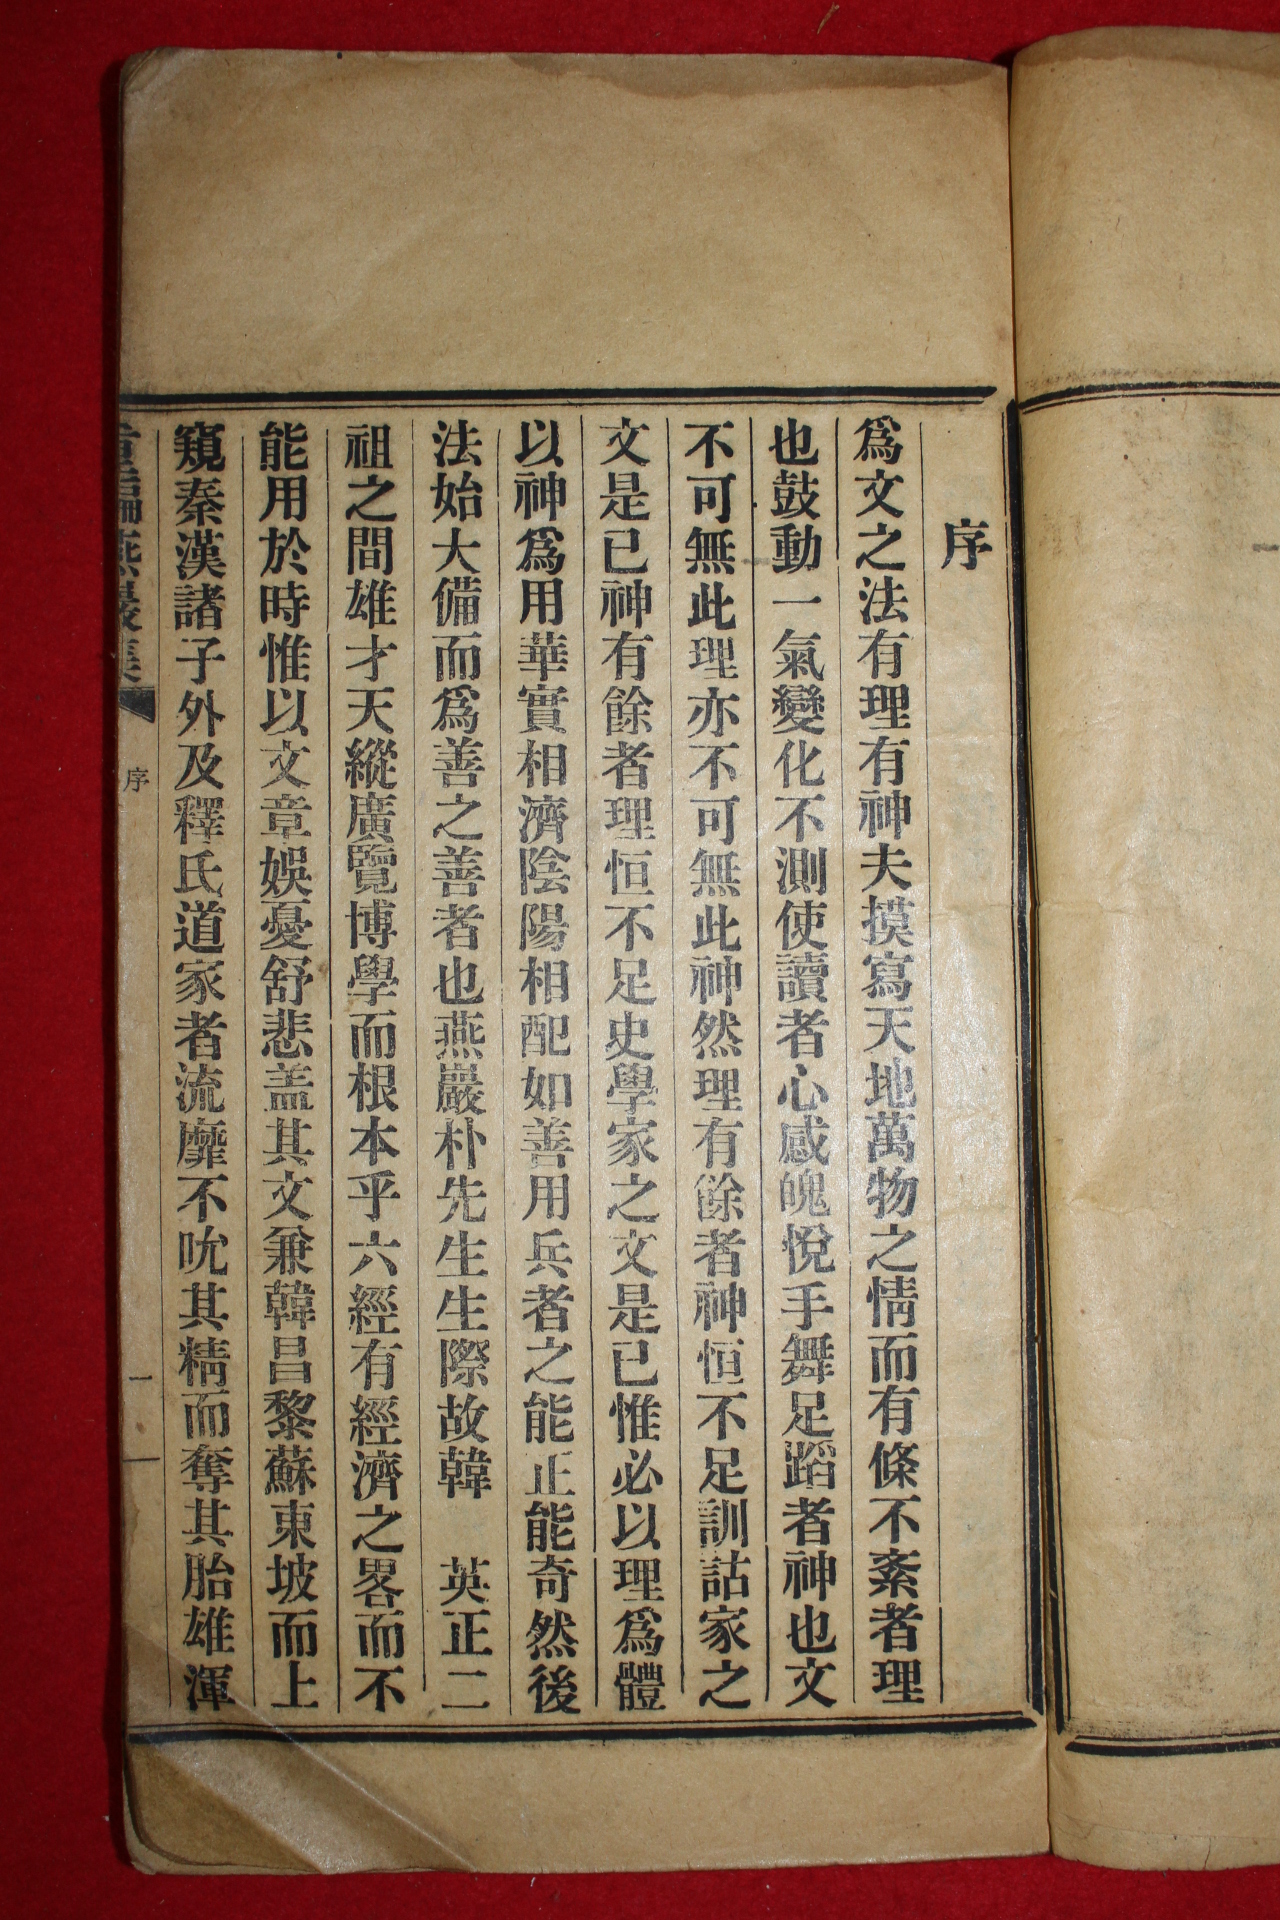 序
爲文之法有理有神夫摸寫天地萬物之情而有條不紊者理
也鼓動一氣變化不測使讀者心感魄悅手舞足蹈者神也文
不可無此理亦不可無此神然理有餘者神恒不足訓詁家之
文是已神有餘者理恒不足史學家之文是已惟必以理爲體
以神爲用華實相濟陰陽相配如善用兵者之能正能奇然後
法始大備而爲善之善者也燕巖朴先生生際故韓　英正二
祖之間雄才天縱廣覽博學而根本乎六經有經濟之畧而不
能用於時惟以文章娛憂舒悲盖其文兼韓昌黎蘇東坡而上
窺秦漢諸子外及釋氏道家者流靡不吮其精而奪其胎雄渾
重編燕巖集
序
一